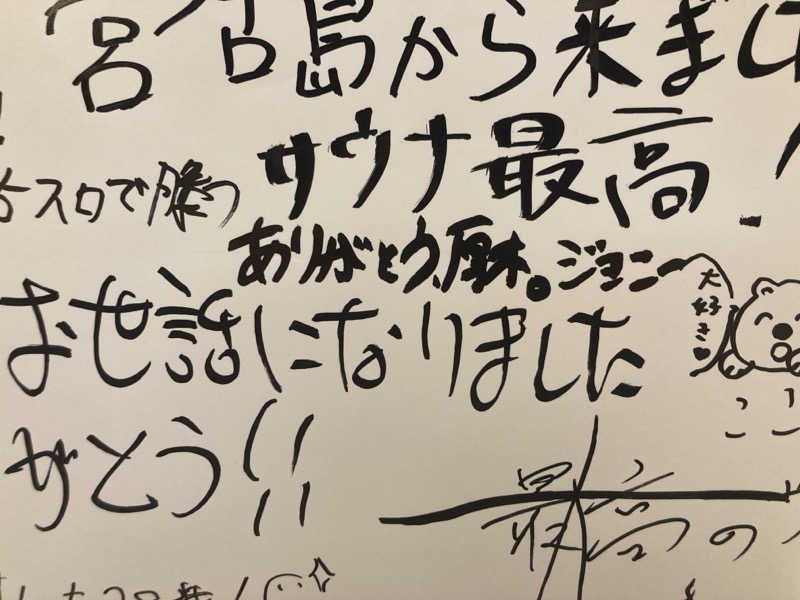 宮古島から来まし
サウナ最高
スロで勝つ
ありがとう、厚木。ジョニー
大好き♡
お世話になりました
ここ
がとう!!
最高の